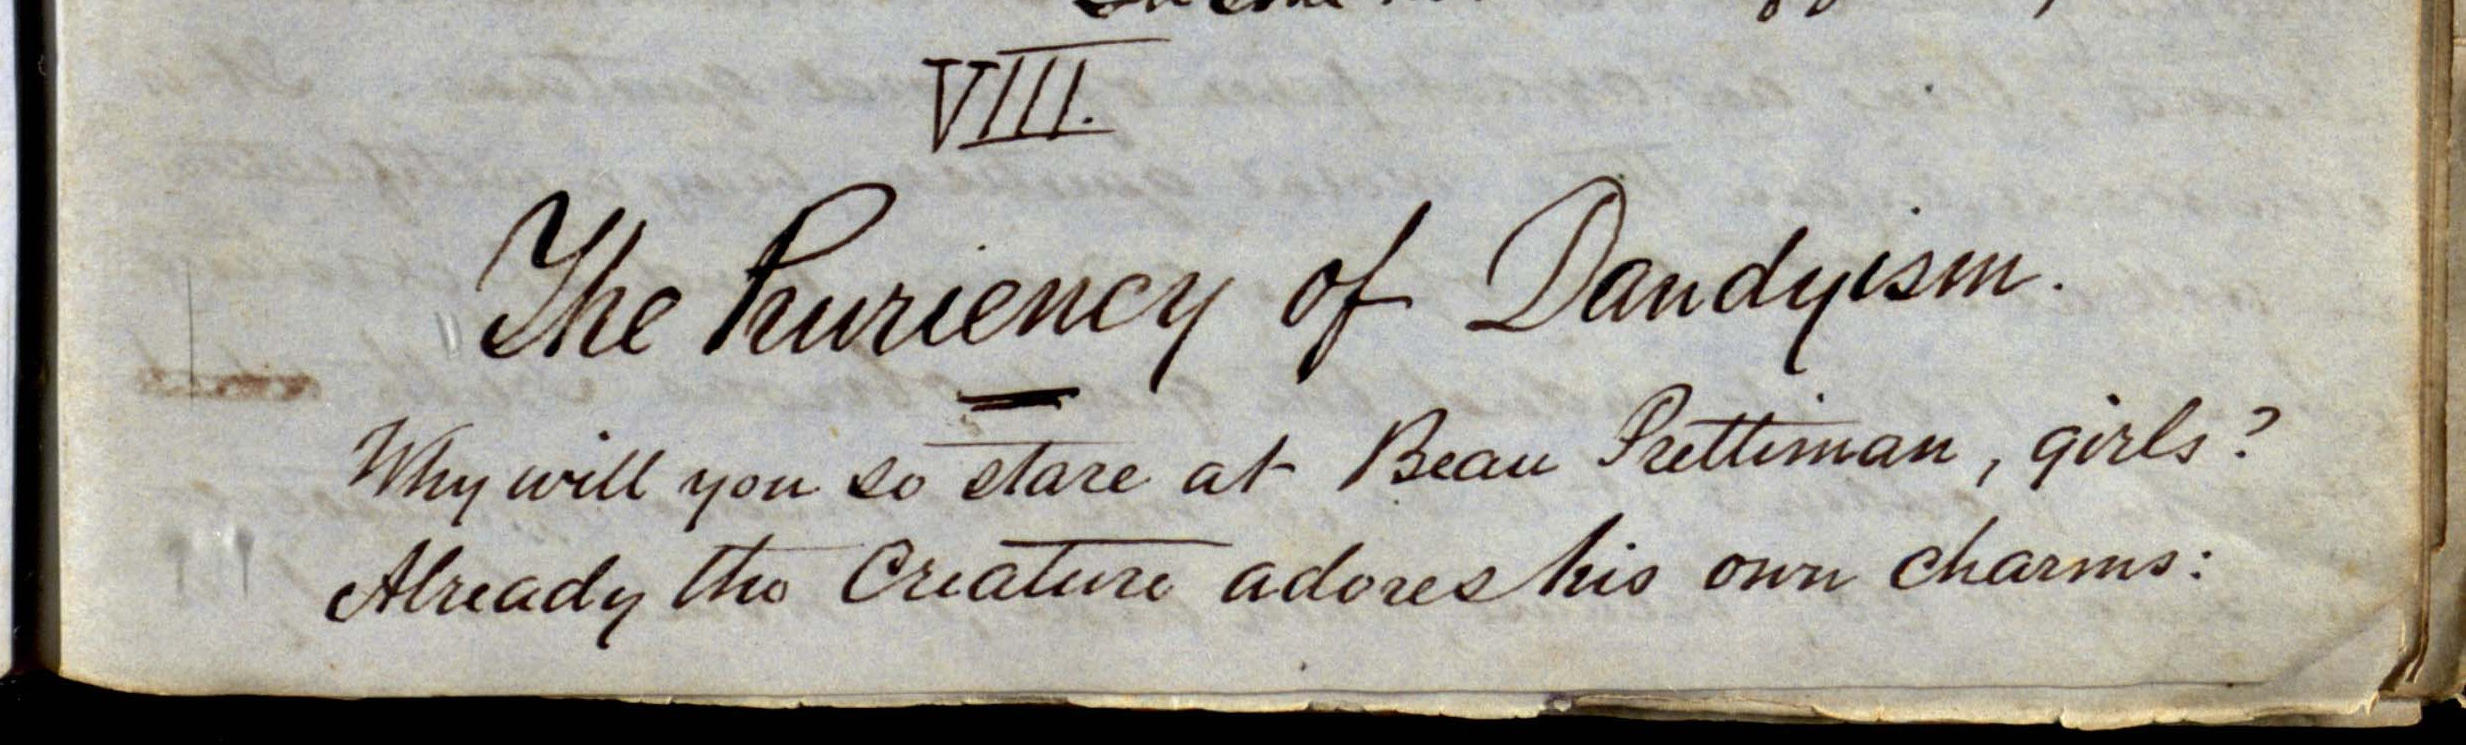 VIII.
The Pruriency of Dandyism.
Why will you so stare at Beau Prettiman, girls?
Already the Creature adores his own charms: